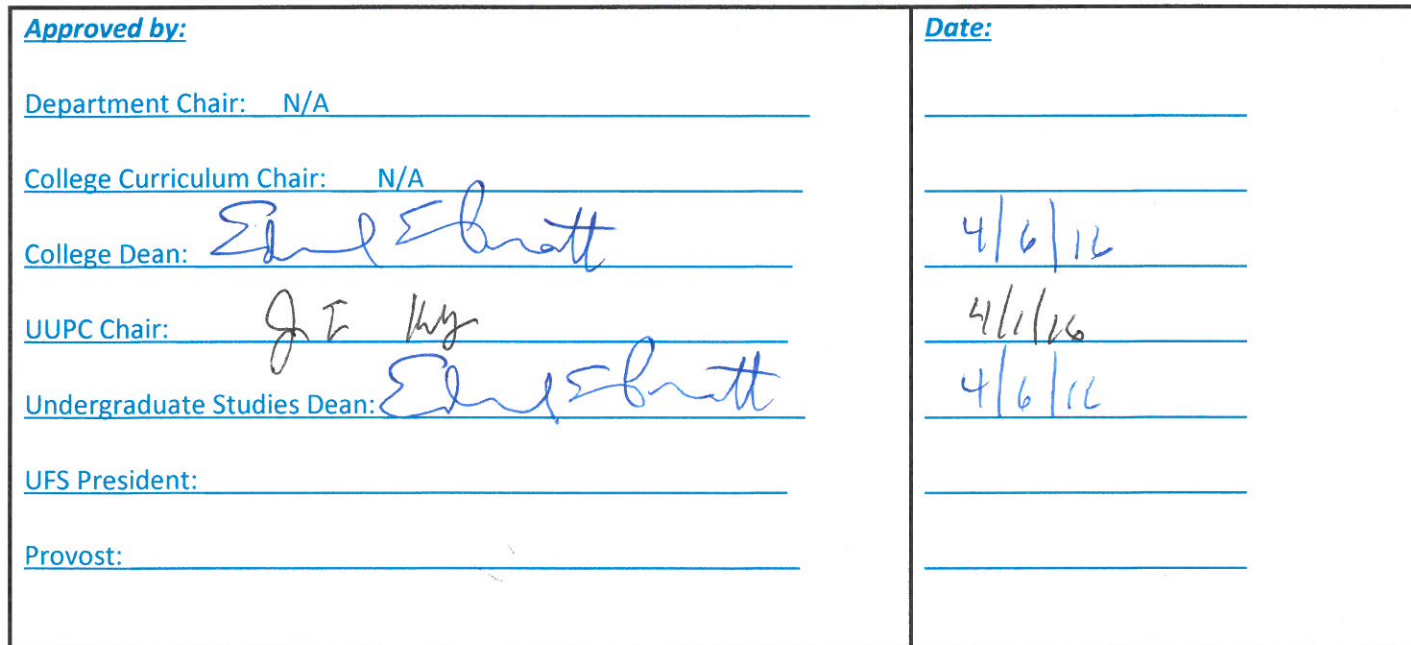 Approved by: Date:
Department Chair: N/A
College Curriculum Chair: N/A
College Dean: 4/6/16
UUPC Chair: 4/1/16
Undergraduate Studies Dean: 4/6/16
UFS President:
Provost: